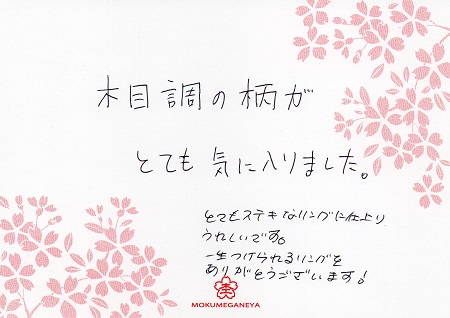 木目調の柄が
とても気に入りました。
とてもステキなリングに仕上り
うれしいです。
一生つけられるリングを
ありがとうございます!
MOKUMEGANEYA